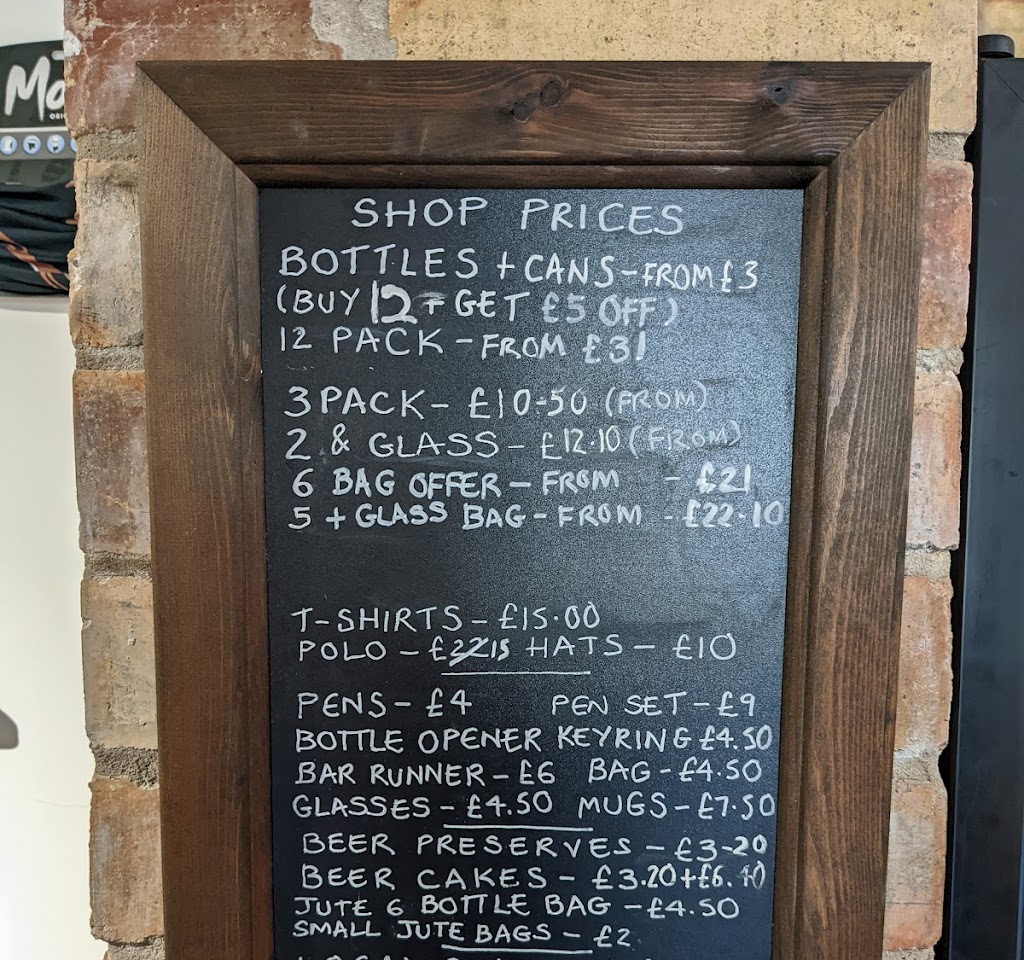 SHOP PRICES
BOTTLES + CANS - FROM £3
(BUY 12 + GET £5 OFF)
12 PACK - FROM £31
3 PACK - £10-50 (FROM)
2 & GLASS - £12.10 (FROM)
6 BAG OFFER - FROM - £21
5 + GLASS BAG - FROM - £22-10
T-SHIRTS - £15.00
POLO - £15 HATS - £10
PENS - £4 PEN SET - £9
BOTTLE OPENER KEYRING £4.50
BAR RUNNER - £6 BAG - £4.50
GLASSES - £4.50 MUGS - £7.50
BEER PRESERVES - £3-20
BEER CAKES - £3.20 + £6.40
JUTE 6 BOTTLE BAG - £4.50
SMALL JUTE BAGS - £2